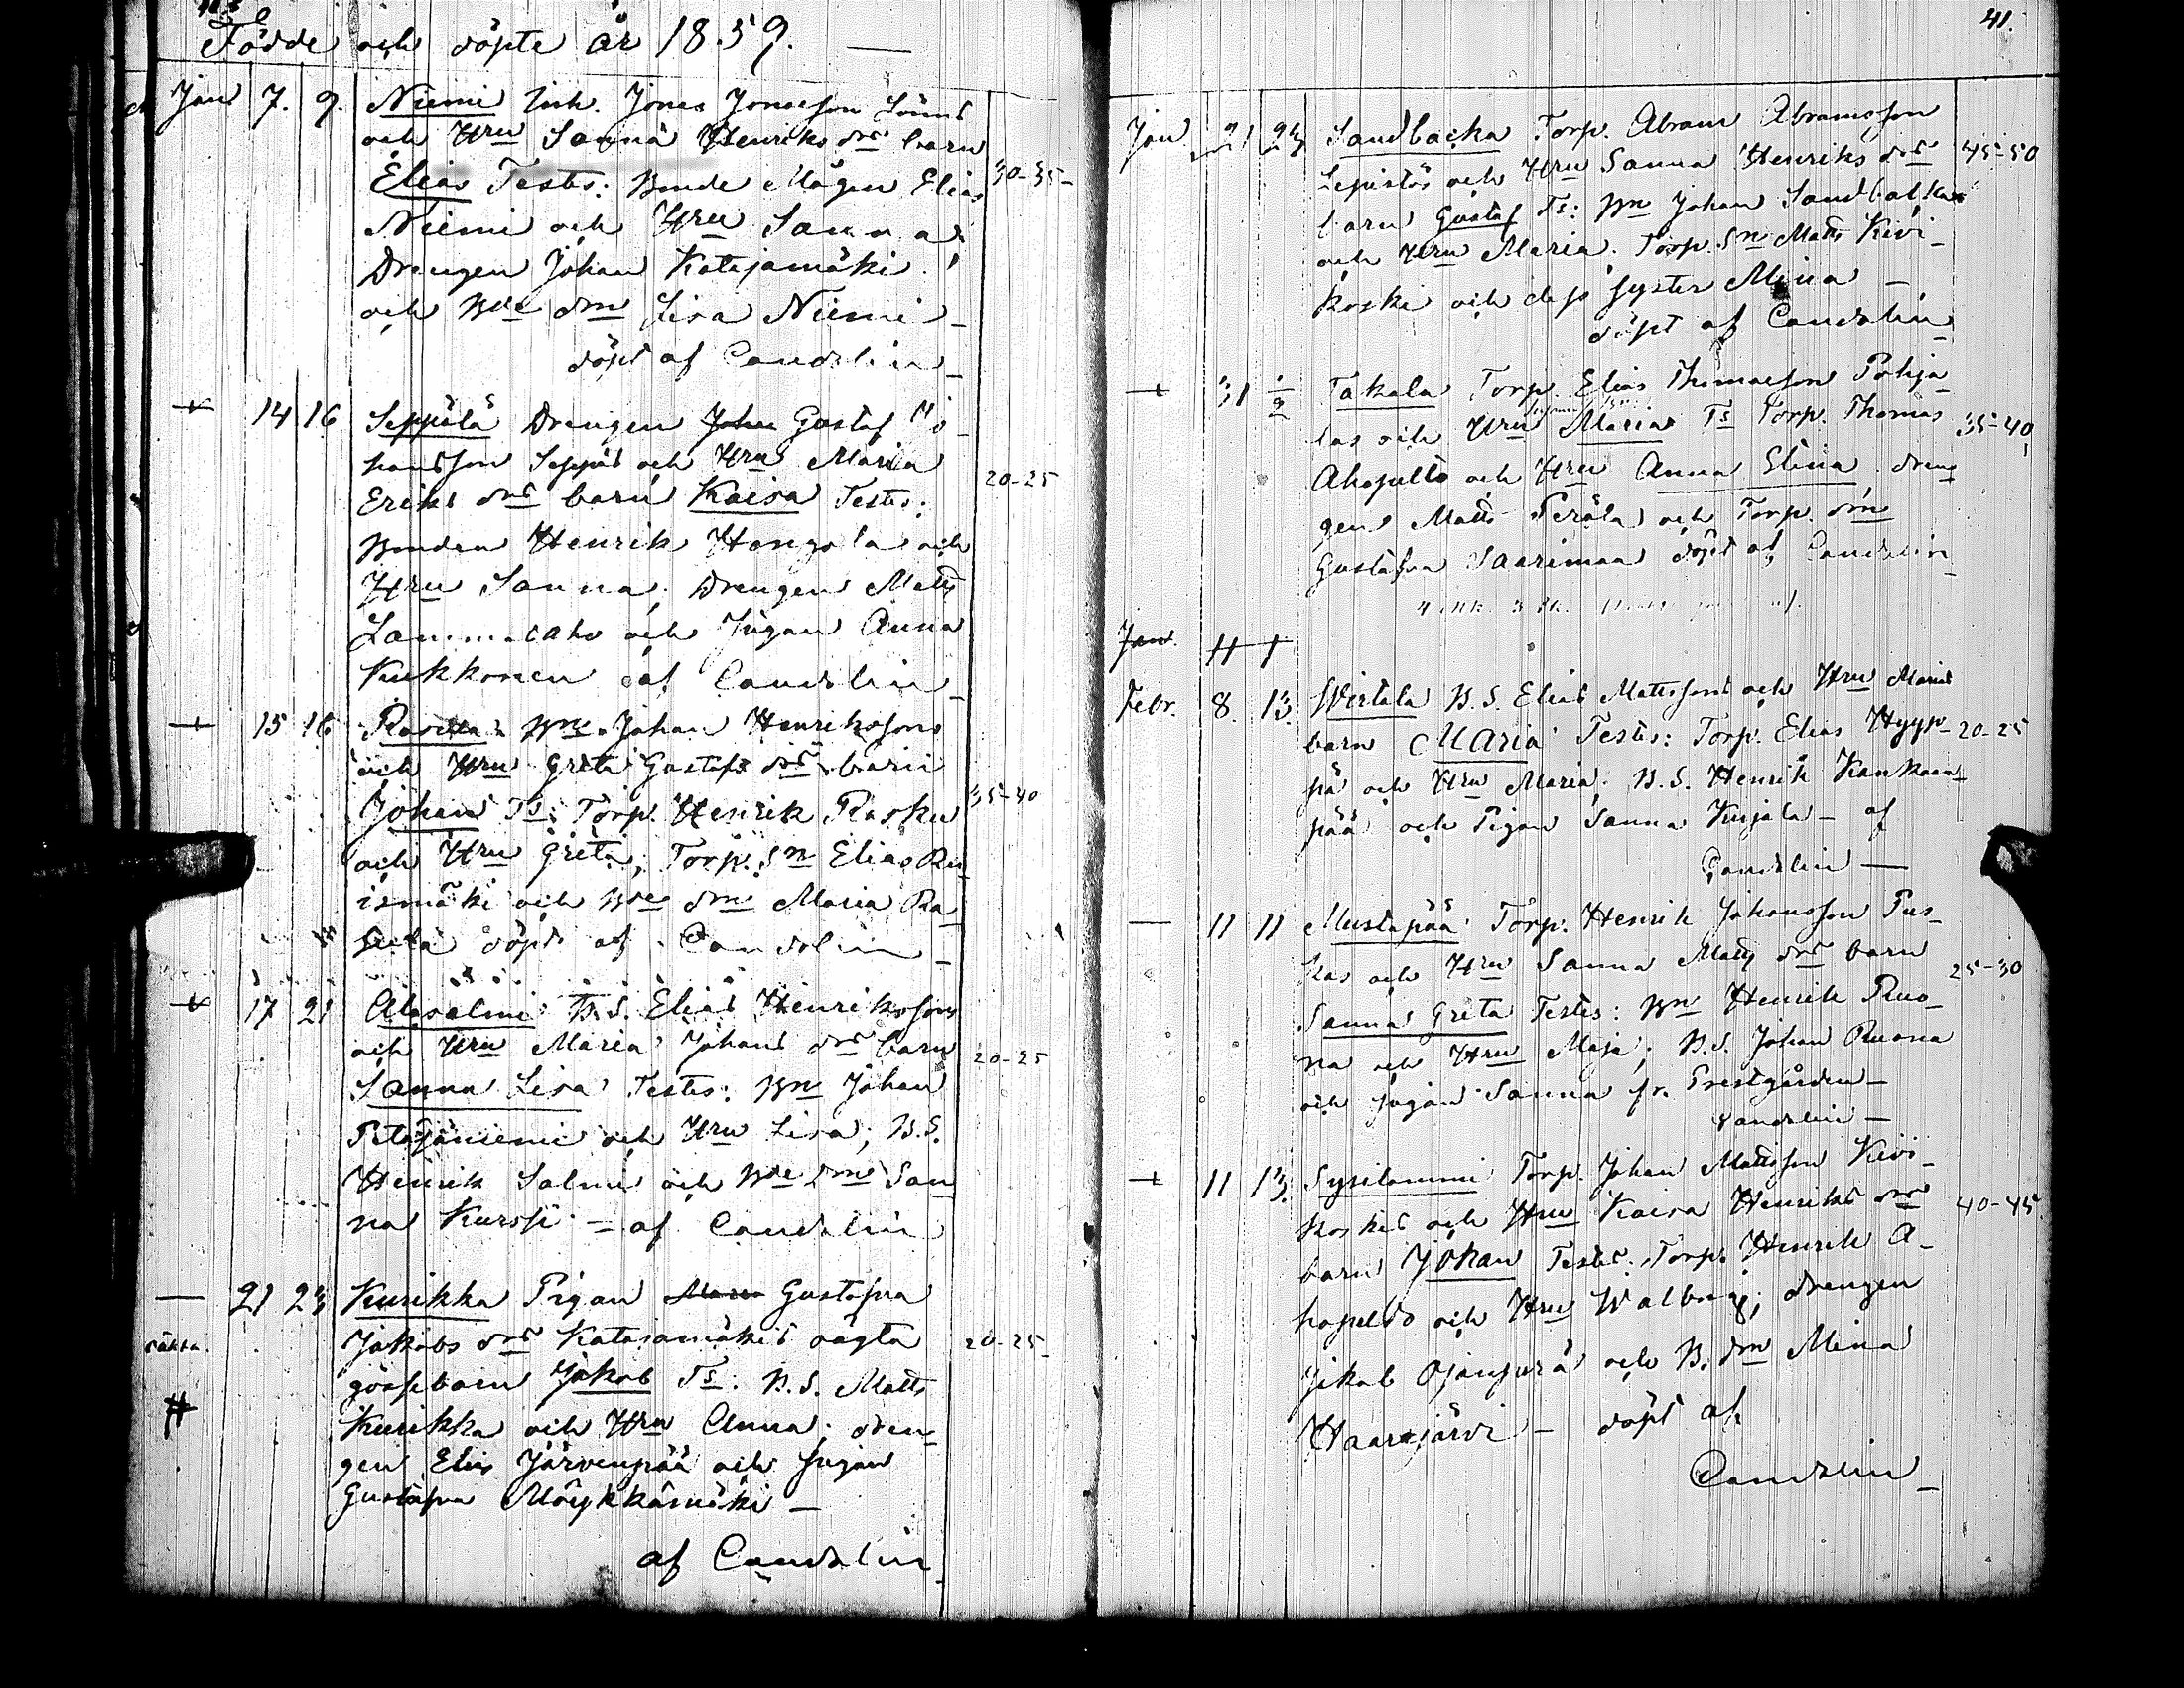 Födde och döpte år 1859.
Jan 7. 9. Niemi Inh. Jonas Jonasson
och Hru Sanna Henriks dr barn
Elias Testes: Bonde Mågen Elias 30-35-
Niemi och Hru Sanna
Drengen Johan Katajamäki
och Bde dm Lisa Niemi -
döpt af Candelin -
14 16 Seppälä Drengen Johan Gustaf Jo-
hansson Seppäs och Hru Maria
Eriks dr barn Kaisa Testes: 20-25
Bonden Henrik Hangola och
Hru Sanna; Drengen Matts
och Pigan Anna
Kukkonen af Candelin -
15 16 Bn Johan Henriksson
och Hru Greta Gustafs dr barn
Johan Ts: Torp. Henrik Rasku 35-40
och Hru Greta; Torp. Sn Elias Ru
ismäki och Bde dm Maria Ra
döpt af Candelin -
17 21 Alasalmi B.S. Elias Henriksson
och Hru Maria Johans dr barn
Sanna Lisa Testes: Bn Johan 20-25
Petäjäniemi och Hru Lisa; B.S.
Henrik Salmi och Bde dm San
na Kurssi - af Candelin
— 21 23 Kurikka Pigan Gustafva
Jakobs dr Katajamäkis oägta 20-25-
gossebarn Jakob Ts: B.S. Matts
Kurikka och Hru Anna; dren-
gen Elias Järvenpää och Pigan
Gustafva Möykkämäki -
af Candelin
41.
Jan 21 23 Sandbacka Torp. Abram Abramsson
Lepistös och Hru Sanna Henriks dr 45-50
barn Gustaf Ts: Bn Johan Sandbacka
och Hru Maria. Torp. Sn Matts Kivi-
koski och dess syster Mina -
döpt af Candelin
31 1/2 Takala Torp. Elias Thomasson Pohja-
las och Hru Maria Ts Torp. Thomas 35-40
Ahopelto och Hru Anna Elina. dren
gen Matts Perälä och Torp. dm
Gustafva Saarimaa döpt af Candelin
Jan.
Febr. 8. 13. Wirtala B.S. Elias Mattsson och Hru Marias
barn Maria Testes: Torp. Elias Hyyp- 20-25
pä och Hru Maria; B.S. Henrik Kankaan-
pää och Pigan Sanna Kujala - af
Candelin —
— 11 11 Mustapää Torp. Henrik Johansson Pus-
kas och Hru Sanna Matts dr barn
Sanna Greta Testes: Bn Henrik Ruo- 25-30
na och Hru Maja; B.S. Johan Ruona
och Pigan Sanna fr. Prestgården -
Candelin -
11 13. Sysilammi Torp. Johan Mattsson Kivi-
koskis och Hru Kaisa Henriks dr 40-45
barn Johan Testes. Torp. Henrik A-
hopelto och Hru Walborg; drengen
Jakob Ojanperä och B. dm Mina
Haarajärvi - döpt af
Candelin -